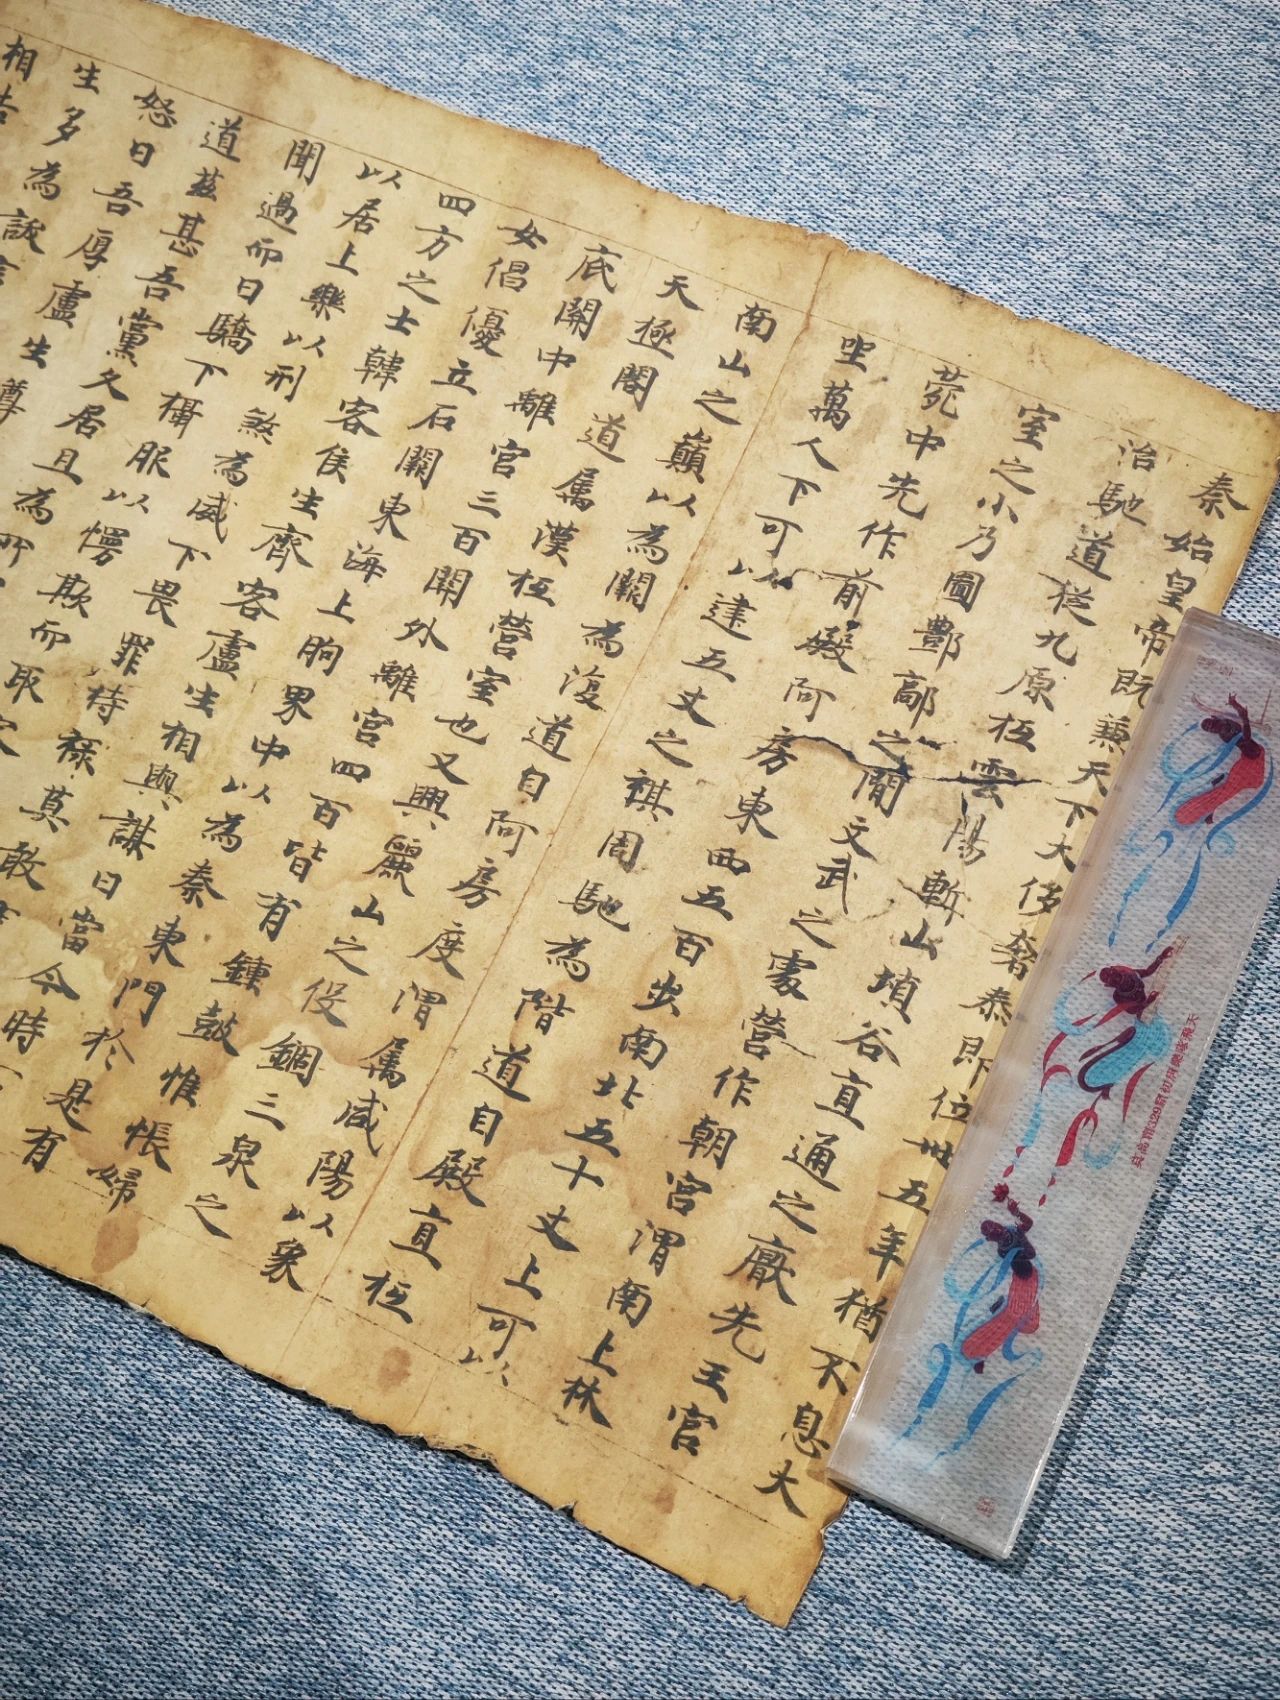 秦始皇帝既兼天下大侈奢泰即位卅五年猶不息大
治馳道從九原抵雲陽塹山堙谷直通之厭先王宮
室之小乃圖酆鄗之間文武之處營作朝宮渭南上林
菀中先作前殿阿房東西五百步南北五十丈上可以
坐萬人下可以建五丈之旗周馳為階道自殿直抵
南山之巔以為闕為復道自阿房度渭屬咸陽以象
天極閣道屬漢抵營室也又興驪山之役錮三泉之
底關中離宮三百關外離宮四百皆有鍾鼓惟帳婦
女倡優立石闕東海上朐界中以為秦東門於是有
四方之士韓客侯生齊客盧生相與謀曰當今時
以居上樂以刑煞為威下畏罪持祿莫敢
聞過而日驕下懾服以慢欺而取容
道茲甚吾黨久居且為所
怒曰吾厚盧生尊
生多為訞言
相告